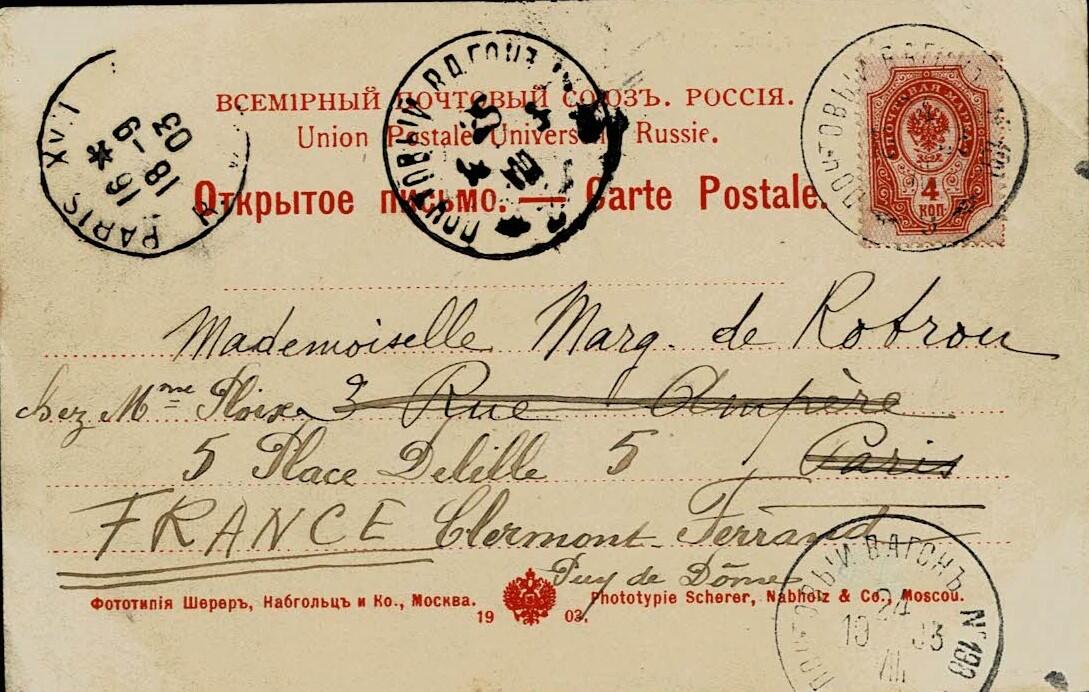 ВСЕМІРНЫЙ ПОЧТОВЫЙ СОЮЗЪ. РОССІЯ.
Union Postale Universelle Russie.
Открытое письмо. — Carte Postale.
PARIS XVI
16 *
18 -9
03
ПОЧТОВЫЙ ВАГОНЪ
ПОЧТОВЫЙ ВАГОНЪ
ПОЧТОВАЯ МАРКА
4
КОП
Mademoiselle Marg. de Rotrou
chez Mme Ploix 3 Rue Ampère
5 Place Delille 5 Paris
FRANCE Clermont-Ferrand
Puy de Dôme
Фототипія Шереръ, Набгольцъ и Ко., Москва.
1903.
Phototypie Scherer, Nabholz & Co., Moscou.
ПОЧТОВЫЙ ВАГОНЪ № 198
24
10 03
VIII